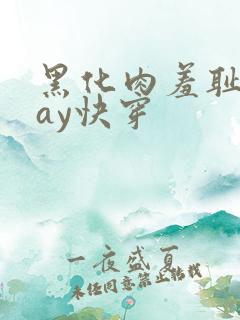 黑化肉羞耻
ay快穿
一夜盛夏
未经同意禁止转载